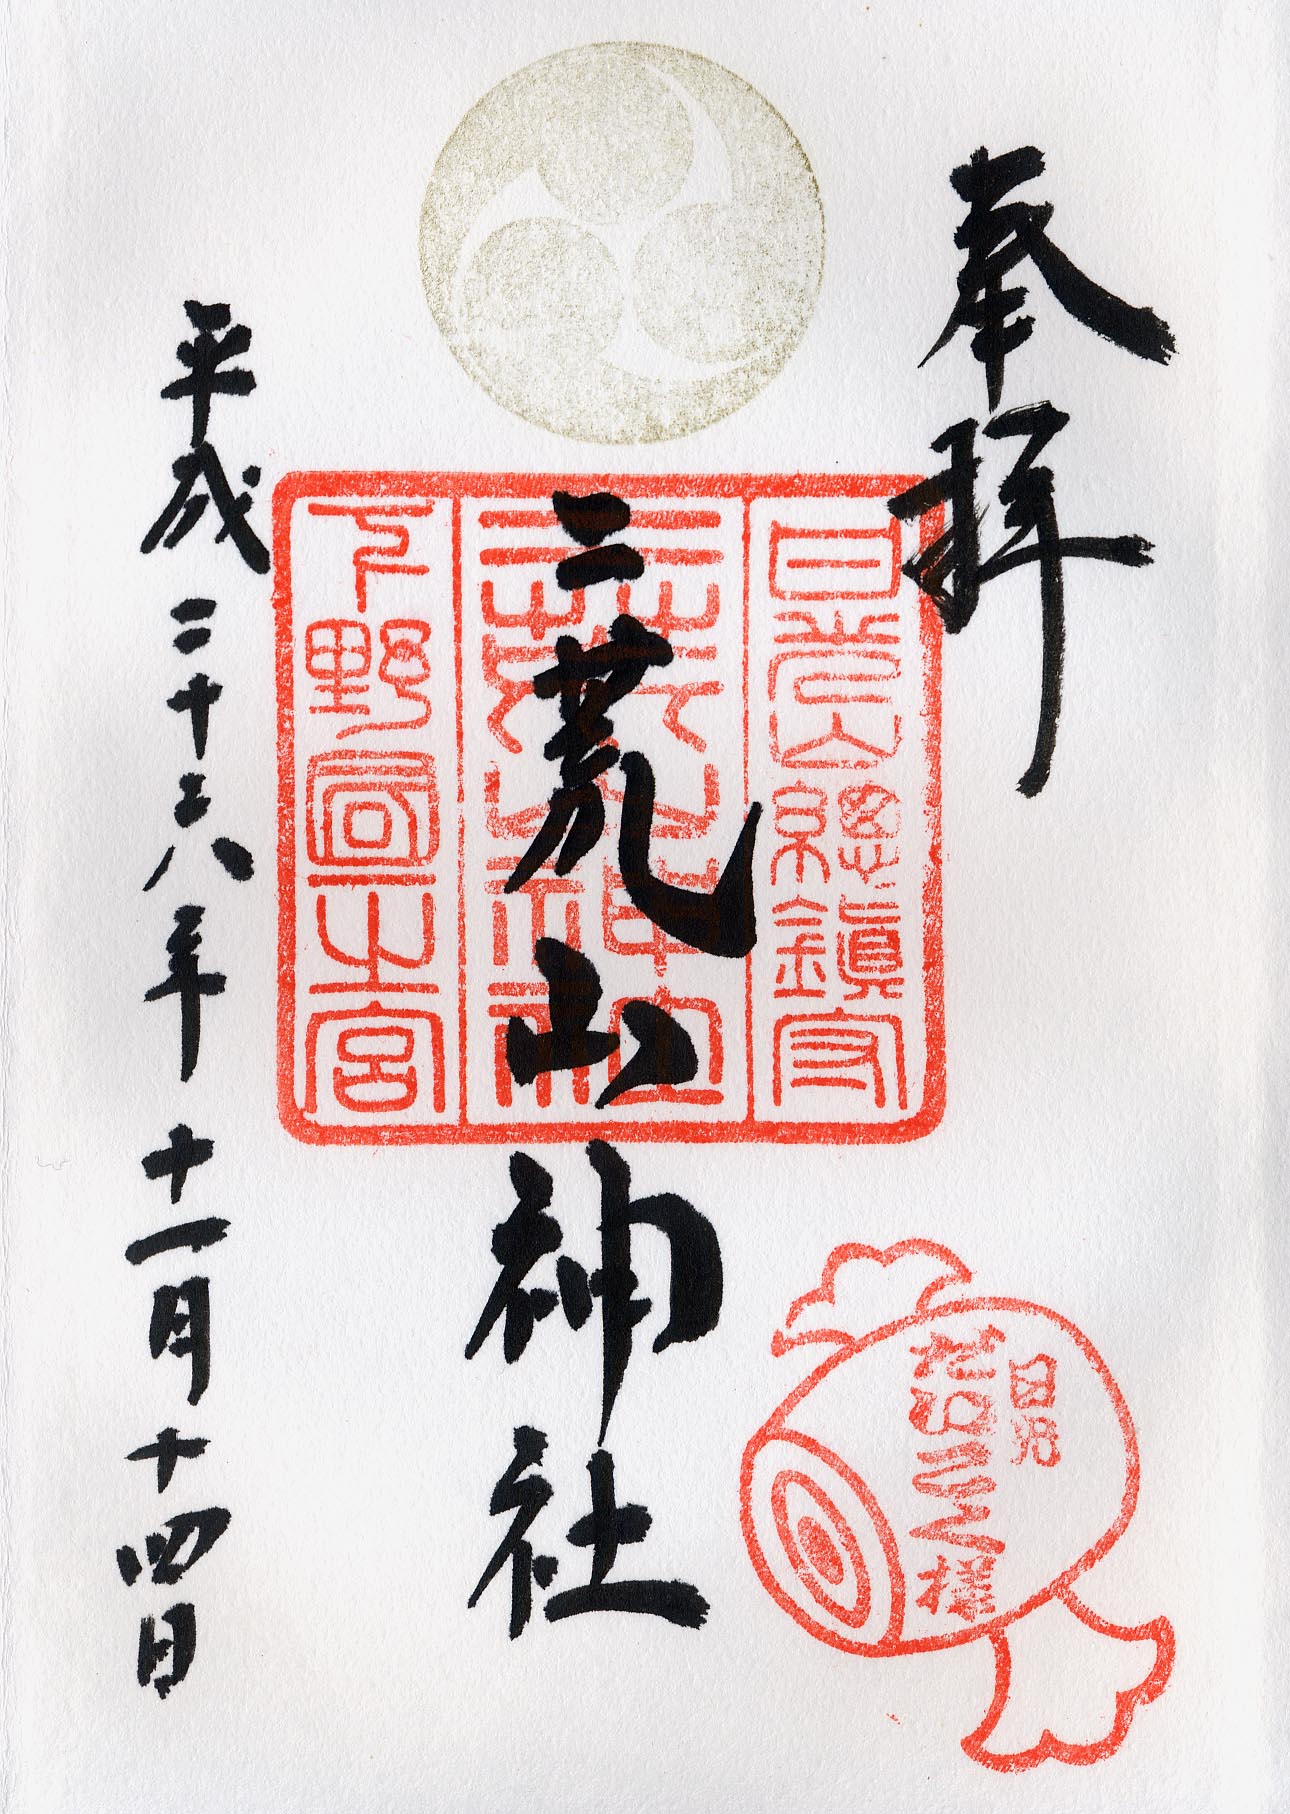 奉拝
日光山總鎭守
二荒山神社
下野國一之宮
二荒山神社
日光
だいこく様
平成二十六年十一月十四日